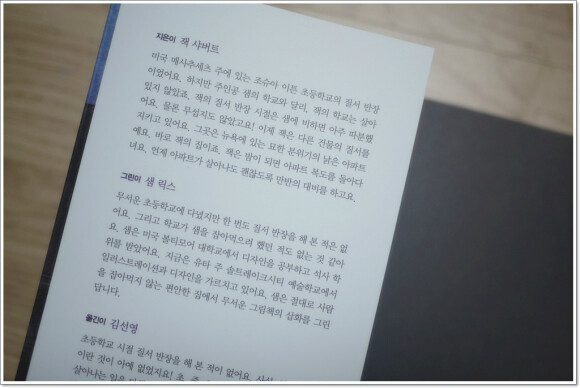 지은이 잭 샤버트
미국 매사추세츠 주에 있는 조슈아 이튼 초등학교의 질서 반장
이었어요. 하지만 주인공 샘의 학교와 달리, 잭의 학교는 살아
있지 않았죠. 잭의 질서 반장 시절은 샘에 비하면 아주 따분했
어요. 물론 무섭지도 않았고요! 이제 잭은 다른 건물의 질서를
지키고 있어요. 그곳은 뉴욕에 있는 묘한 분위기의 낡은 아파트
예요. 바로 잭의 집이죠. 잭은 밤이 되면 아파트 복도를 돌아다
녀요. 언제 아파트가 살아나도 괜찮도록 만반의 대비를 하고요.
그린이 샘 릭스
무서운 초등학교에 다녔지만 한 번도 질서 반장을 해 본 적은 없
어요. 그리고 학교가 샘을 잡아먹으려 했던 적도 없는 것 같아
요. 샘은 미국 볼티모어 대학교에서 디자인을 공부하고 석사 학
위를 받았어요. 지금은 유타 주 솔트레이크시티 예술학교에서
일러스트레이션과 디자인을 가르치고 있어요. 샘은 절대로 사람
을 잡아먹지 않는 편안한 집에서 무서운 그림책의 삽화를 그린
답니다.
옮긴이 김선영
초등학교 시절 질서 반장을 해 본 적이 없어요. 사실
이란 것이 아예 없었지요! 초
살아나는 일은